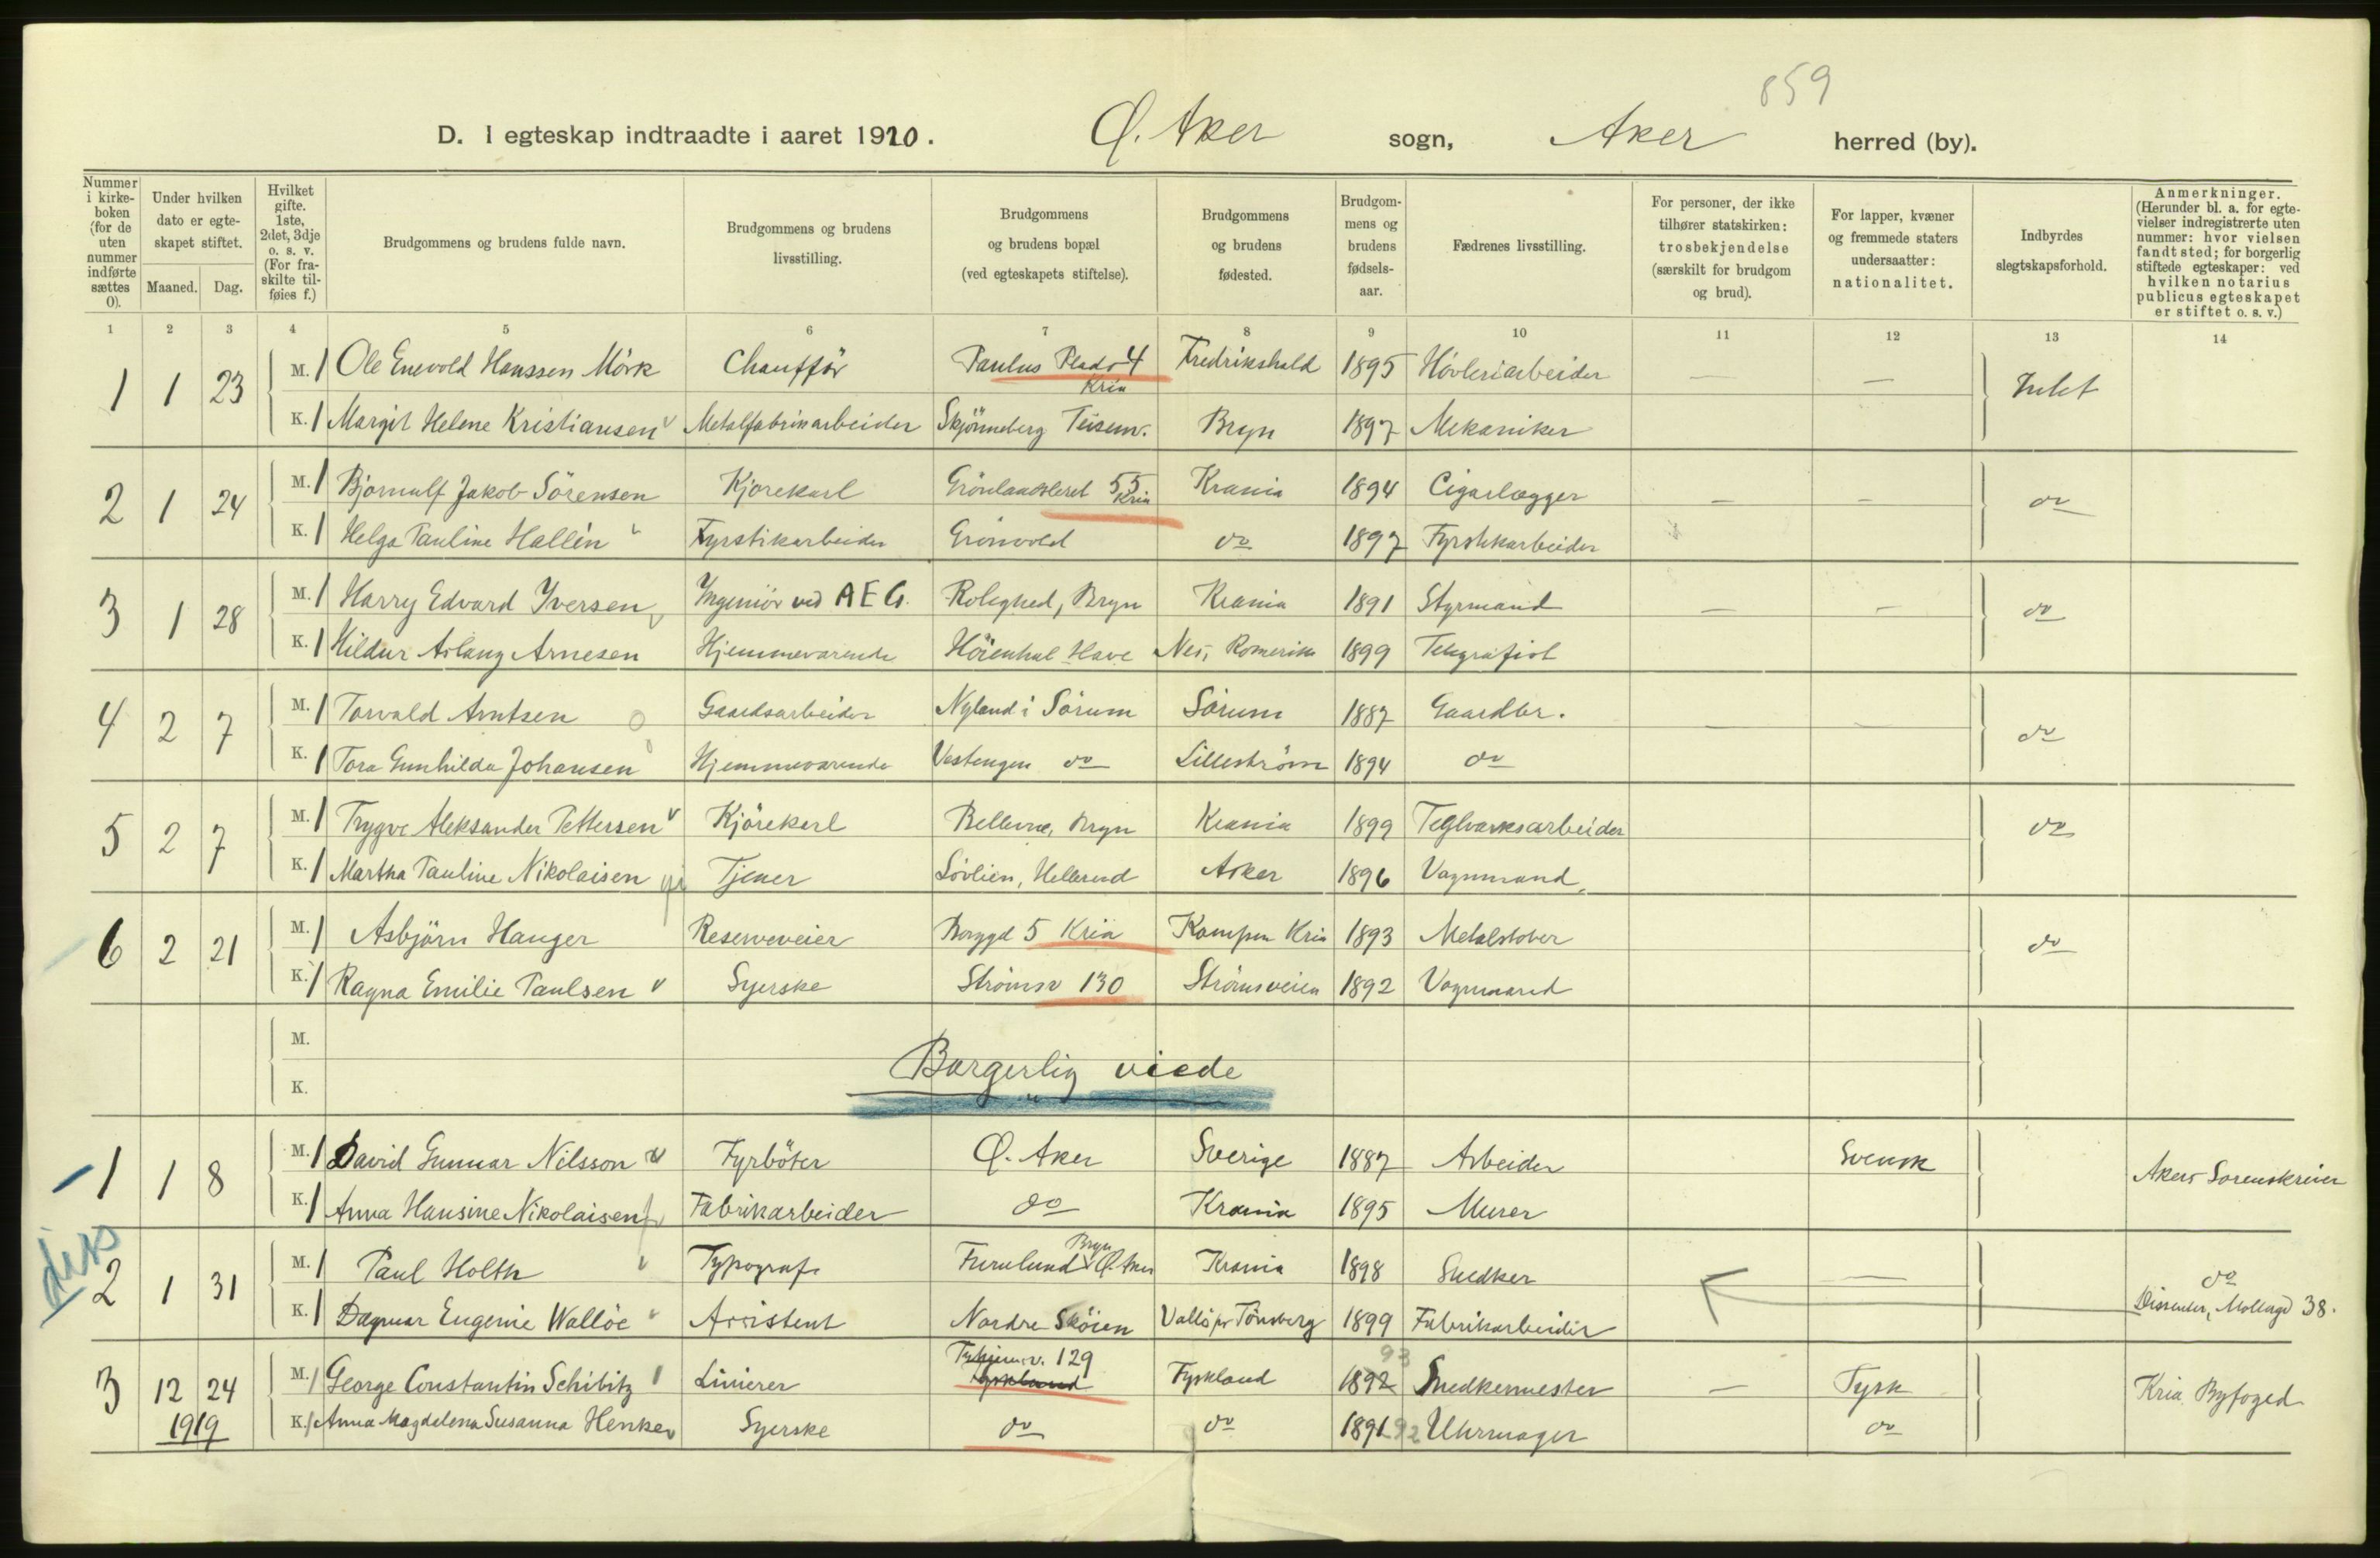 859
D. I egteskap indtraadte i aaret 1920. Ø. Aker sogn, Aker herred (by).
Nummer i kirkeboken (for de uten nummer indførte sættes 0).
Under hvilken dato er egteskapet stiftet.
Maaned. Dag.
Hvilket gifte. 1ste, 2det, 3dje o. s. v. (For fraskilte tilføies f.)
Brudgommens og brudens fulde navn.
Brudgommens og brudens livsstilling.
Brudgommens og brudens bopæl (ved egteskapets stiftelse).
Brudgommens og brudens fødested.
Brudgommens og brudens fødselsaar.
Fædrenes livsstilling.
For personer, der ikke tilhører statskirken: trosbekjendelse (særskilt for brudgom og brud).
For lapper, kvæner og fremmede staters undersaatter: nationalitet.
Indbyrdes slegtskapsforhold.
Anmerkninger. (Herunder bl. a. for egtevielser indregistrerte uten nummer: hvor vielsen fandt sted; for borgerlig stiftede egteskaper: ved hvilken notarius publicus egteskapet er stiftet o. s. v.)
1 2 3 4 5 6 7 8 9 10 11 12 13 14
1 1 23 M. 1 Ole Enevold Hanssen Mörk Chaufför Paulus Plads 4 Kria Fredrikshald 1895 Hövleriarbeider — — Intet
K. 1 Margit Helene Kristiansen Metalfabrikarbeider Skjönneberg Teisenv. Bryn 1897 Mekaniker
2 1 24 M. 1 Bjornulf Jakob Sörensen Kjorekarl Grönlandsleret 55 Kria Krania 1894 Cigarlægger — — do
K. 1 Helga Pauline Hallén Fyrstikarbeider Grönvold do 1897 Fyrstikarbeider
3 1 28 M. 1 Harry Edvard Iversen Ingeniör ved AEG. Rolighed, Bryn Krania 1891 Styrmand — — do
K. 1 Hildur Aslaug Arnesen Hjemmeværende Höienhal Have Nes, Romerike 1899 Telegrafist
4 2 7 M. 1 Torvald Arntsen Gaardsarbeider Nyland i Sörum Sörum 1887 Gaardbr. — — do
K. 1 Tora Gunhilda Johansen Hjemmeværende Vestengen do Lilleström 1894 do
5 2 7 M. 1 Trygve Aleksander Pettersen Kjörekarl Bellevue, Bryn Krania 1899 Teglværksarbeider do
K. 1 Martha Pauline Nikolaisen Tjener Lövlien, Hellerud Asker 1896 Vognmand
6 2 21 M. 1 Asbjörn Hauger Reserveveier Borggd 5 Kria Kampen Kria 1893 Metalstöber do
K. 1 Ragna Emilie Paulsen Syerske Strömsv 130 Strömsveien 1892 Vognmand
M.
K.
Borgerlig viede
1 1 8 M. 1 David Gunnar Nilsson Fyrböter Ø. Aker Sverige 1887 Arbeider Svensk Akers Sorenskriver
K. 1 Anna Hansine Nikolaisen Fabrikarbeider do Krania 1895 Murer
diss
2 1 31 M. 1 Paul Holth Typograf Furulund Bryn Ø. Aker Krania 1898 Snedker — do
K. 1 Dagmar Eugenie Wallöe Assistent Nordre Sköien Vallö pr Tönsberg 1899 Fabrikarbeider Dissenter, Mollergd 38.
3 12 24 M. 1 George Constantin Schibitz Linierer 129 Tyskland Tyskland 1892 93 Snedkermester — Tysk Kria Byfoged
1919 K. 1 Anna Magdalena Susanna Henker Syerske do do 1891 92 Uhrmager do